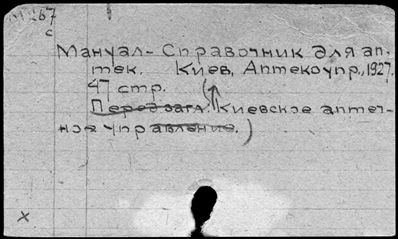 267
с
Мануал-Справочник для ап-
тек. Киев, Аптекоупр., 1927.
47 стр. (
Перед загл: Киевское аптеч-
ное управление.)
х